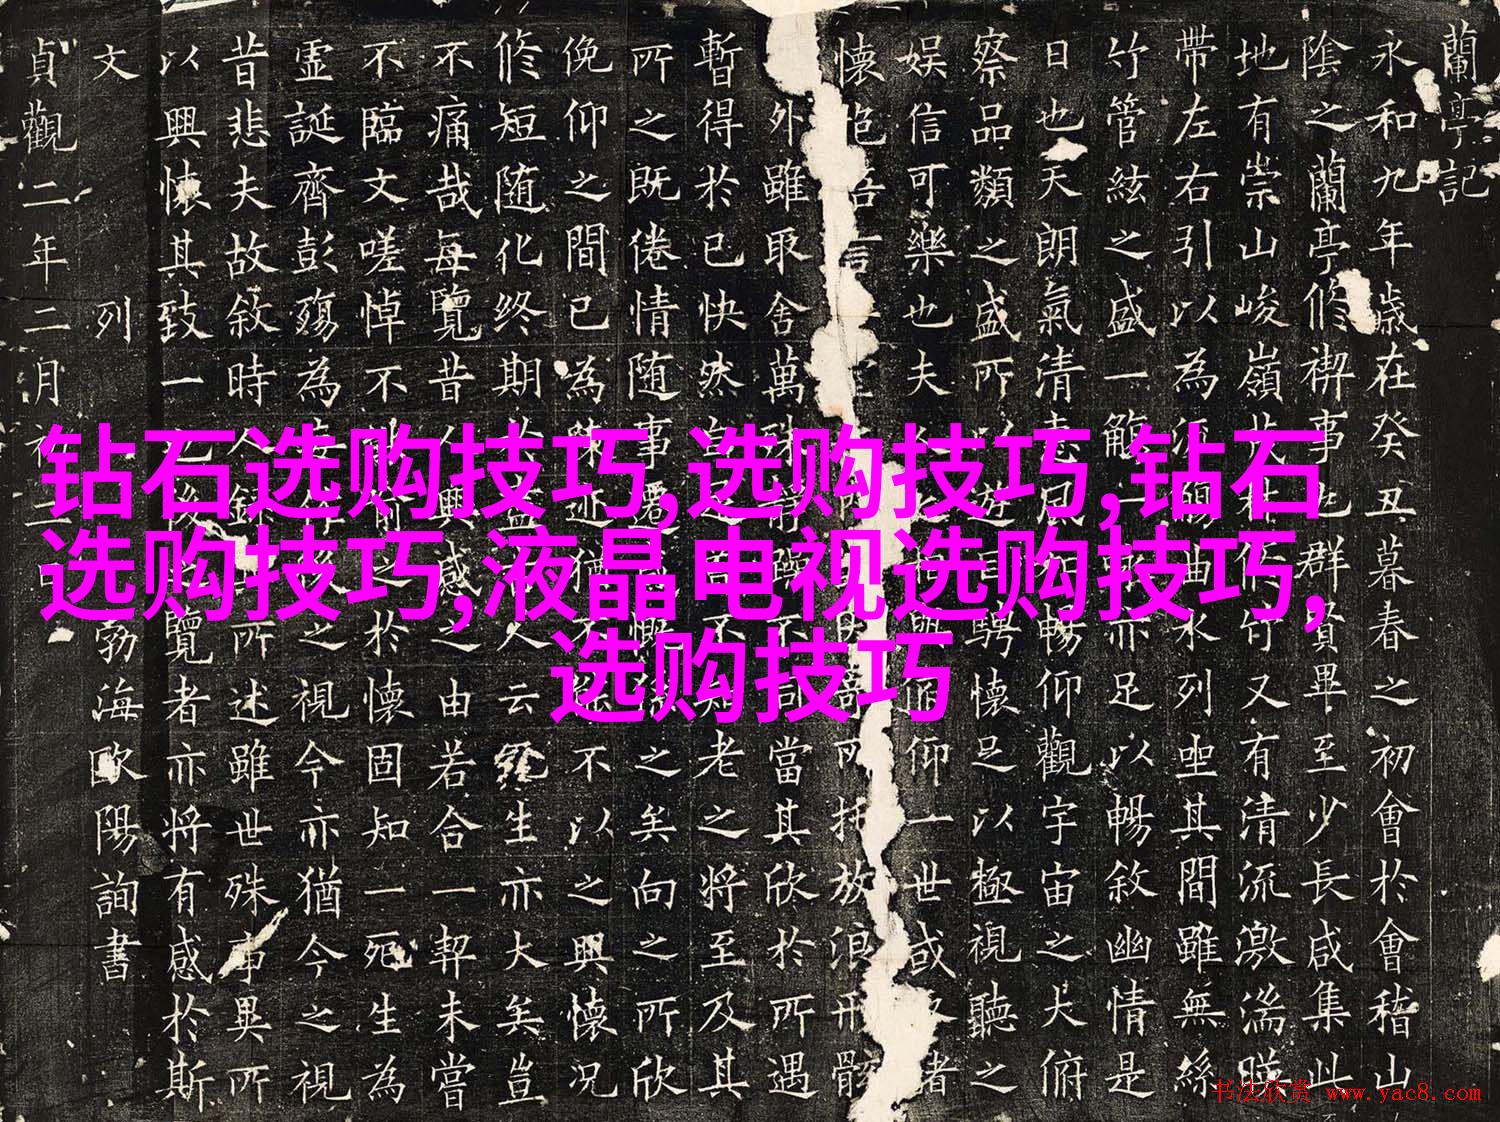 蘭亭記
永和九年歲在癸丑暮春之初會於會稽山
陰之蘭亭修禊事也群賢畢至少長咸集此
地有崇山峻嶺茂林竹又有清流激湍暎
帶左右引以為流觴曲水列坐其間雖無絲
竹管絃之盛一觴一亦足以暢敘幽情是
日也天朗氣清惠風和暢仰觀宇宙之大俯
察品類之盛所以遊目騁懷足以極視聽之
娛信可樂也夫人之相與俯仰一世或取諸
懷抱悟言一室內所托放浪形骸
外雖取舍萬殊靜躁不同當其欣於所遇
暫得於己快然自足不知老之將至及其
所之既倦情随事遷慨係之矣向之所欣
俛仰之間已為陳迹猶不能不以之興懷況
修短随化终期於盡人云死生亦大矣豈
不痛哉每覽昔人興感之由若合一契未嘗
不臨文嗟悼不能喻之於懷固知一死生為
虛誕齊彭殤為妄作後之視今亦猶今之視
昔悲夫故敘時人錄其所述雖世殊事異所
以興懷其致一也後之覽者亦將有感於斯
文 列 勃海歐陽詢書
貞觀二年二月初三日
钻石选购技巧,选购技巧,钻石
选购技巧,液晶电视选购技巧,
选购技巧
书法欣赏 www.yac8.com